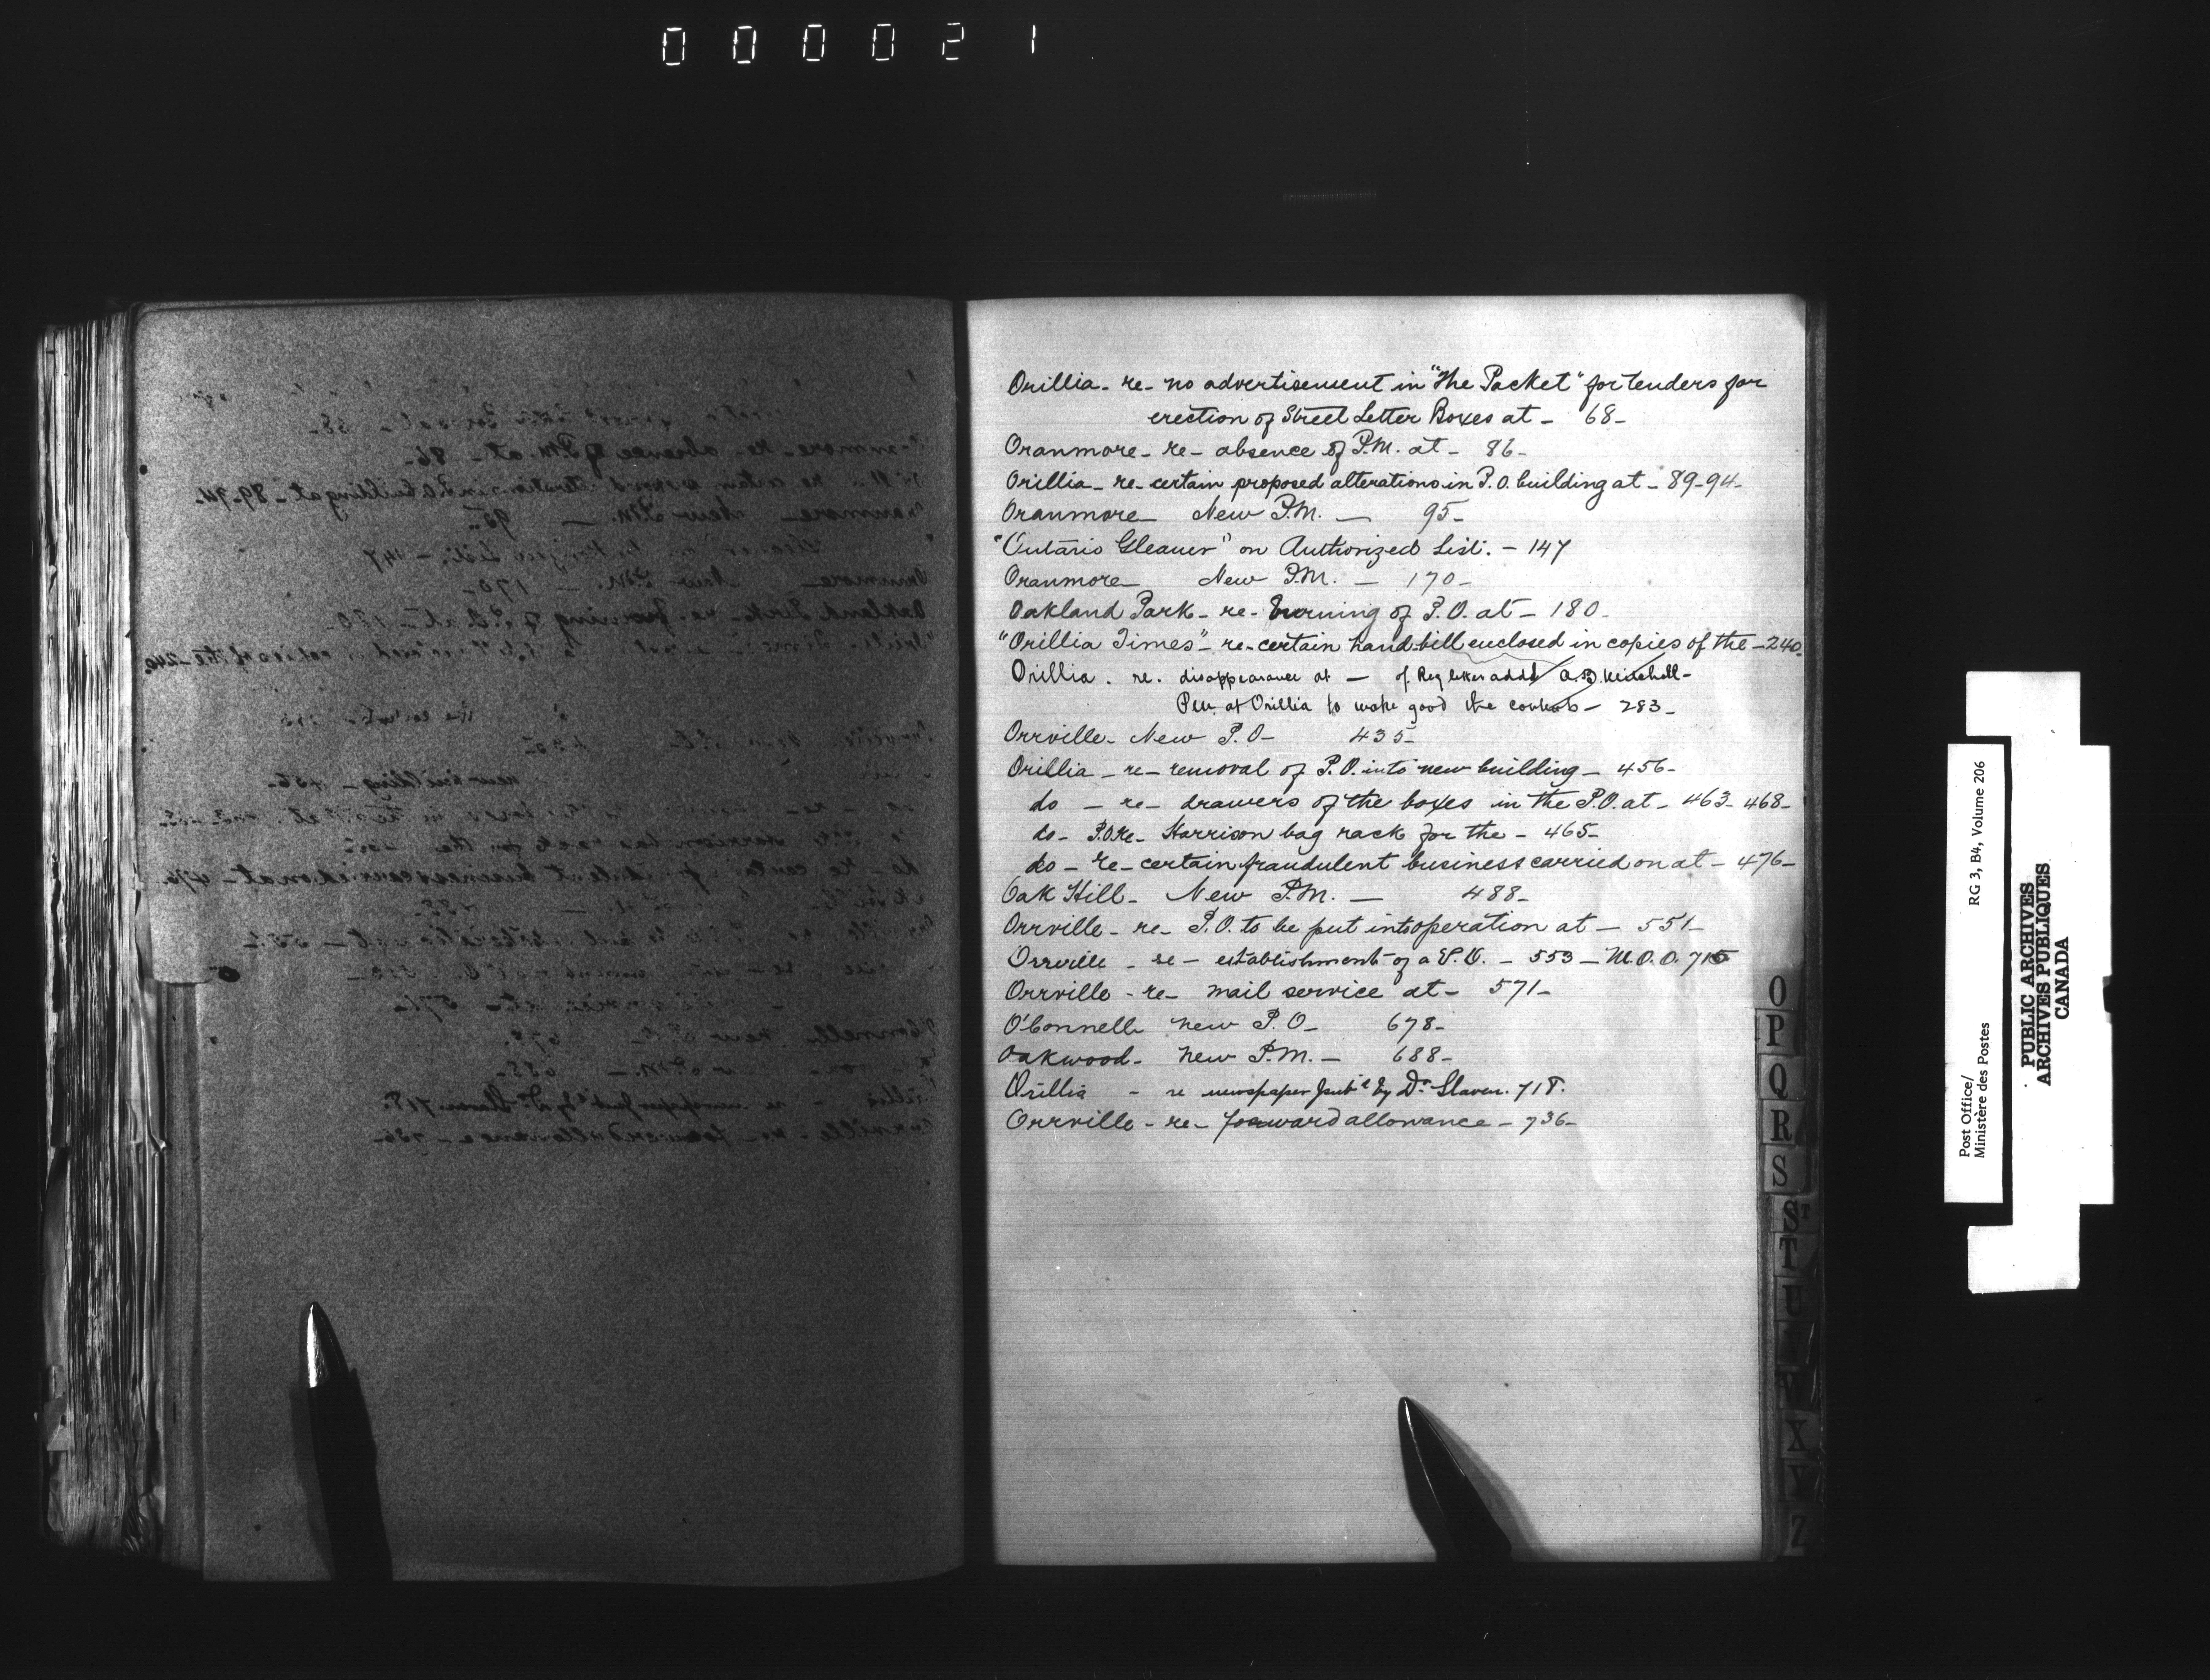 000021
Orillia - re - no advertisement in "The Packet" for tenders for
erection of Street Letter Boxes at - 68 -
Oranmore - re - absence of P.M. at - 86 -
Orillia - re - certain proposed alterations in P.O. building at - 89-94 -
Oranmore - New P.M. - 95 -
"Ontario Gleaner" on Authorized List. - 147
Oranmore - New P.M. - 170 -
Oakland Park - re - burning of P.O. at - 180 -
"Orillia Times" - re - certain hand-bill enclosed in copies of the - 240.
Orillia . re . disappearance at - of Reg letter addd A.B.
P.M. at Orillia to make good the contents - 283 -
Orrville - New P.O - 435 -
Orillia - re - removal of P.O. into new building - 456 -
do - re - drawers of the boxes in the P.O. at - 463 - 468 -
do - P.O. Re - Harrison bag rack for the - 465 -
do - re - certain fraudulent business carried on at - 476 -
Oak Hill - New P.M. - 488 -
Orrville - re - P.O. to be put into operation at - 551 -
Orrville - re - establishment of a P.O. - 553 - M.O.O. 715
Orrville - re - mail service at - 571 -
O'Connell new P.O - 678 -
Oakwood - new P.M. - 688 -
Orillia - re newspaper pubd by Dr Slaven. 718.
Orrville - re - forward allowance - 736 -
O
P
Q
R
S
ST
T
U
V
X
Y
Z
Post Office/
Ministère des Postes
RG 3, B4, Volume 206
PUBLIC ARCHIVES
ARCHIVES PUBLIQUES
CANADA